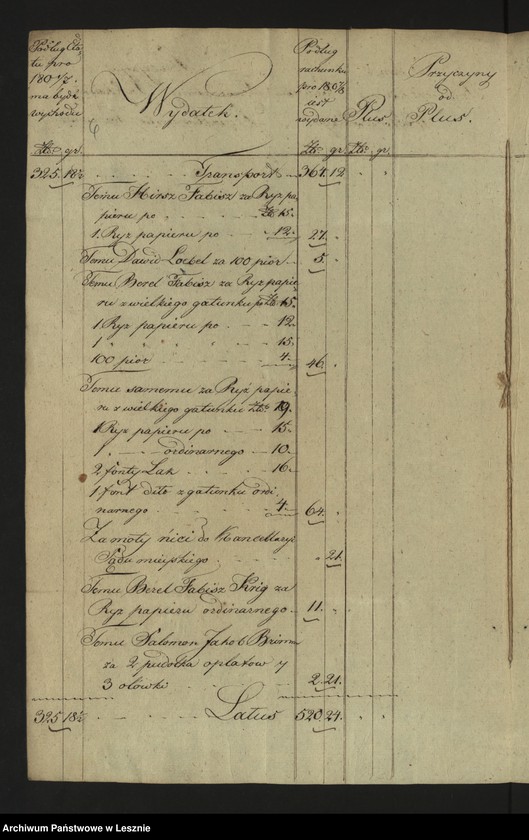 Podług Eta
tu pro
180 7/8.
ma bydź
wychodu
Złł. gr.
Wydatek.
Podług
rachunku
pro 180 7/8
jest
wydane
Złł. gr.
Plus.
Złł. gr.
Przyczyny
od
Plus.
325. 18 Transport 364. 12
Temu Hirsz Fabisz za Ryz pa
pieru po Złł 15.
1. Ryz papieru po 12. 27. -
Temu Dawid Loebel za 100 pior 5. -
Temu Berel Fabisz za Ryz papie
ru z wielkiego gatunku po Złł 15.
1 Ryz papieru po 12.
1 " " " " 15.
100 pior 4. 46. -
Temu samemu za Ryz papie
ru z wielkiego gatunku Złł 19.
1 Ryz papieru po 15.
1 - ordinarnego 10.
2 fonty Lak 16.
1 font dito z gatunku ordi
narnego 4. 64. -
Za moty nici do Kancellaryi
Sądu mieyskiego - 21.
Temu Berel Fabisz Krig za
Ryz papieru ordinarnego 11. -
Temu Salomon Jakob
za 2 pudełka opłatow y
3 ołowki 2. 21.
325 18 Latus 520. 24.
Archiwum Państwowe w Lesznie